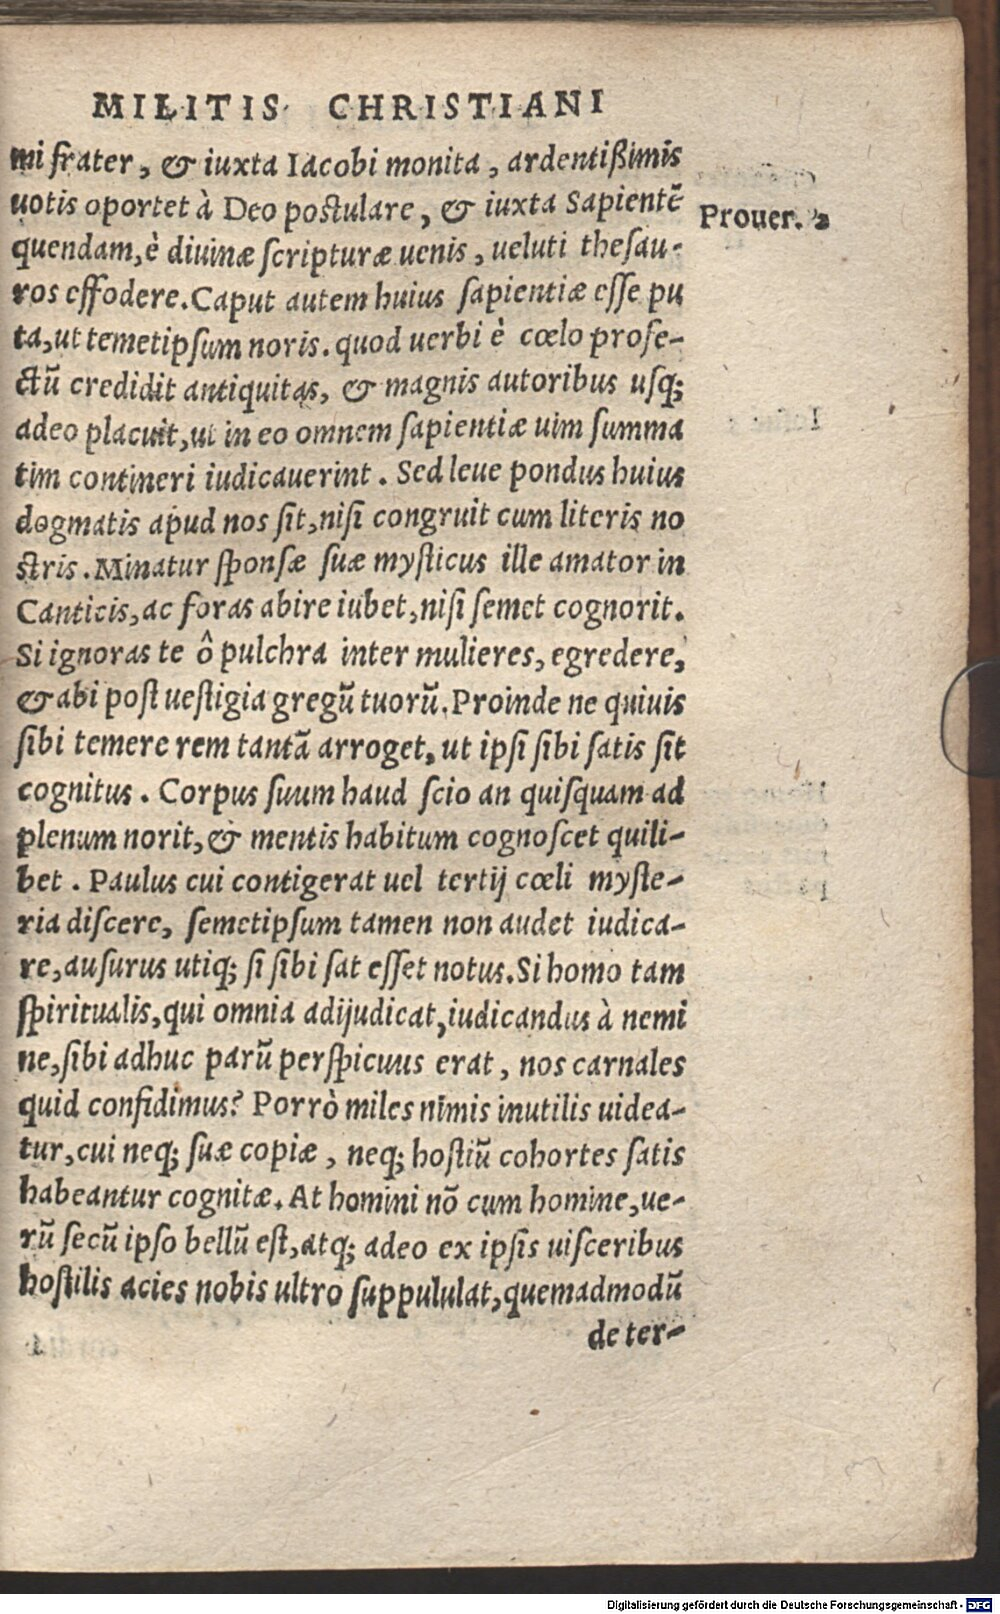 MILITIS CHRISTIANI
mi frater, & iuxta Iacobi monita, ardentißimis
uotis oportet à Deo postulare, & iuxta Sapientẽ
Prouer. 2
quendam, è diuinæ scripturæ uenis, ueluti thesau-
ros effodere. Caput autem huius sapientiæ esse pu
ta, ut temetipsum noris. quod uerbi è cœlo profe-
ctũ credidit antiquitas, & magnis autoribus usq;
adeo placuit, ut in eo omnem sapientiæ uim summa
tim contineri iudicauerint. Sed leue pondus huius
dogmatis apud nos sit, nisi congruit cum literis no
stris. Minatur sponsæ suæ mysticus ille amator in
Canticis, ac foras abire iubet, nisi semet cognorit.
Si ignoras te ô pulchra inter mulieres, egredere,
& abi post uestigia gregũ tuorũ. Proinde ne quiuis
sibi temere rem tantã arroget, ut ipsi sibi satis sit
cognitus. Corpus suum haud scio an quisquam ad
plenum norit, & mentis habitum cognoscet quili-
bet. Paulus cui contigerat uel tertij cœli myste-
ria discere, semetipsum tamen non audet iudica-
re, ausurus utiq; si sibi sat esset notus. Si homo tam
spiritualis, qui omnia adijudicat, iudicandus à nemi
ne, sibi adhuc parũ perspicuus erat, nos carnales
quid confidimus? Porrò miles nimis inutilis uidea-
tur, cui neq; suæ copiæ, neq; hostiũ cohortes satis
habeantur cognitæ. At homini nõ cum homine, ue-
rũ secũ ipso bellũ est, atq; adeo ex ipsis uisceribus
hostilis acies nobis ultro suppululat, quemadmodũ
de ter-
Digitalisierung gefördert durch die Deutsche Forschungsgemeinschaft - DFG